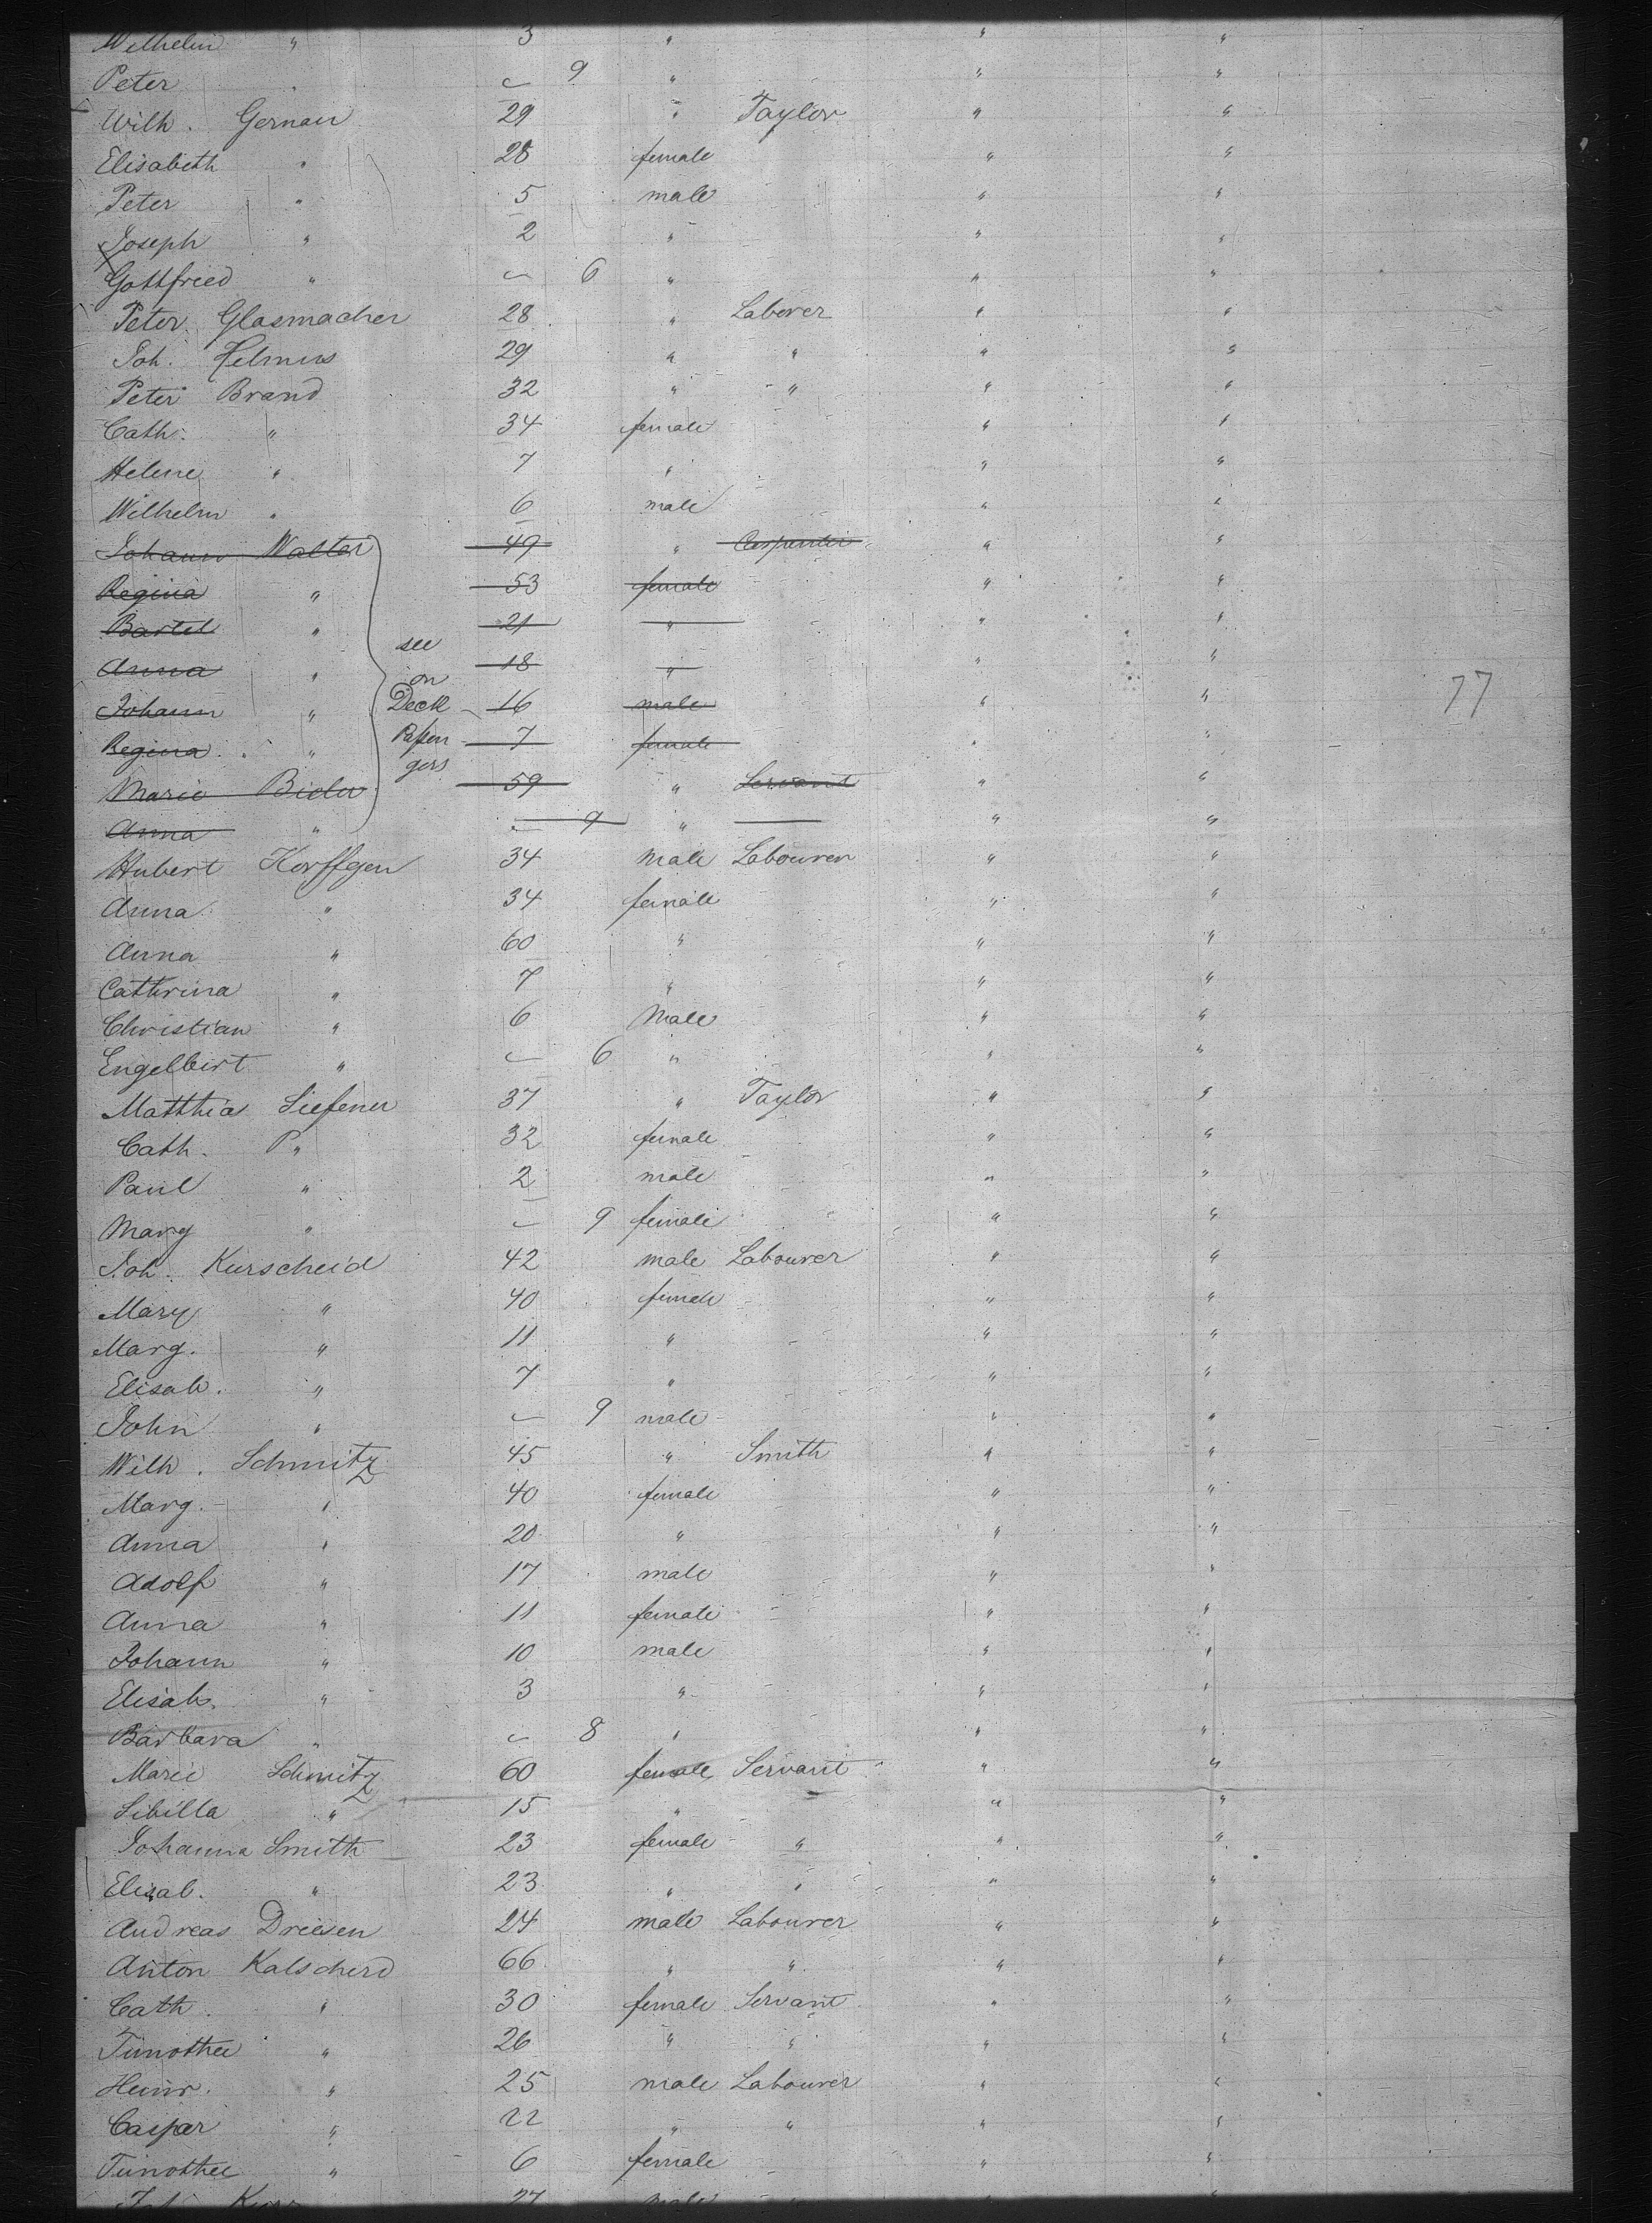 Wilhelm " 3 " " "
Peter " — 9 " " "
Wilh. Gernau 29 " Taylor " "
Elisabeth " 28 female " "
Peter " 5 male " "
Joseph " 2 " " "
Gottfried " — 6 " " "
Peter Glasmacher 28 " Laborer " "
Joh. Helmus 29 " " " "
Peter Brand 32 " " " "
Cath. " 34 female " "
Helene " 7 " " "
Wilhelm " 6 male " "
Johann Walter 49 " Carpenter " "
Regina " 53 female " "
Bartel " 21 " " "
see
Anna " 18 " " "
on
Johann " Deck 16 male " "
77
Regina " Passen 7 female " "
gers
Marie Bieler 59 " Servant " "
Anna " — 9 " — " "
Hubert Korffgen 34 Male Labourer " "
Anna " 34 female " "
Anna " 60 " " "
Cathrina " 7 " " "
Christian " 6 Male " "
Engelbert " — 6 " " "
Matthia Liefener 37 " Taylor " "
Cath. P " 32 female " "
Paul " 2 male " "
Marg " — 9 female " "
Joh. Kurscheid 42 male Labourer " "
Mary " 40 female " "
Marg. " 11 " " "
Elisab. " 7 " " "
John " — 9 male " "
Wilh. Schmitz 45 " Smith " "
Marg. " 40 female " "
Anna " 20 " " "
Adolf " 17 male " "
Anna " 11 female " "
Johann " 10 male " "
Elisab. " 3 " " "
Barbara " — 8 " " "
Marie Schmitz 60 female Servant " "
Sibilla " 15 " " "
Johanna Smith 23 female " " "
Elisab. " 23 " " " "
Andreas Driesen 24 male Labourer " "
Anton Kalscherd 66 " " " "
Cath. " 30 female Servant " "
Timothee " 26 " " " "
Heinr. " 25 male Labourer " "
Caspar " 22 " " " "
Timothee " 6 female " "
27 male " " "